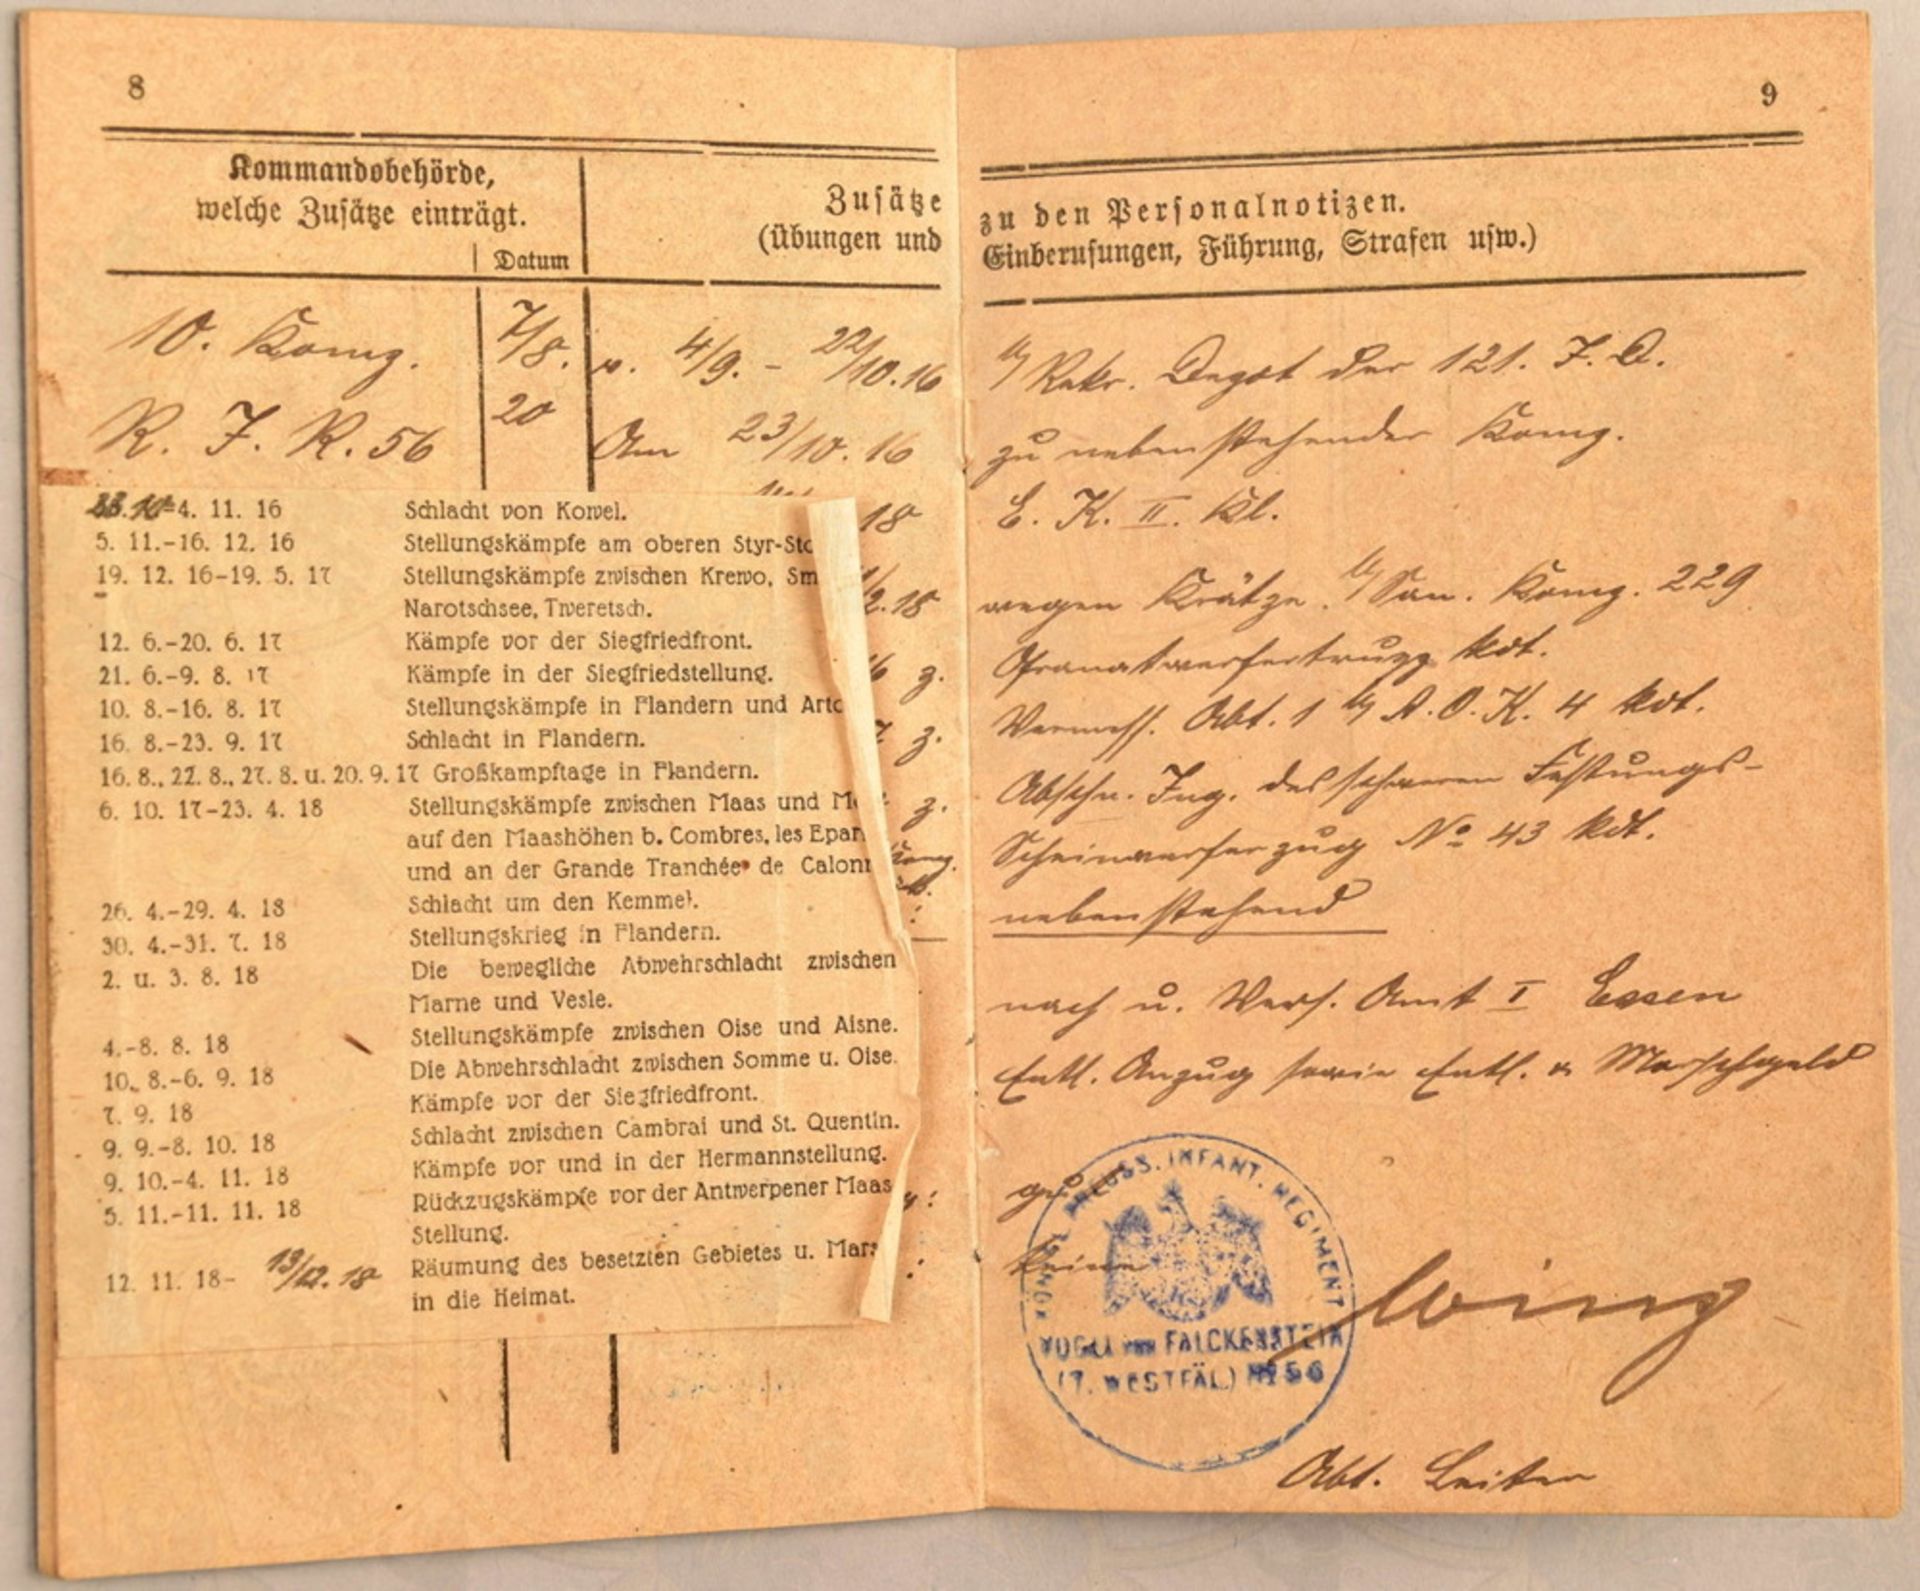 8
Kommandobehörde,
welche Zusätze einträgt.
Datum
Zusätze
(Übungen und
10. Komp.
7/8.
v. 4/9. - 22/10.16
R. I. R. 56
20
Am 23/10.16
18
4. 11. 16 Schlacht von Kowel.
5. 11.-16. 12. 16 Stellungskämpfe am oberen Styr-Sto
19. 12. 16-19. 5. 17 Stellungskämpfe zwischen Krewo, Sm
Narotschsee, Tweretsch.
2.18
12. 6.-20. 6. 17 Kämpfe vor der Siegfriedfront.
21. 6.-9. 8. 17 Kämpfe in der Siegfriedstellung.
z.
10. 8.-16. 8. 17 Stellungskämpfe in Flandern und Arto
16. 8.-23. 9. 17 Schlacht in Flandern.
z.
16. 8., 22. 8., 27. 8. u. 20. 9. 17 Großkampftage in Flandern.
6. 10. 17-23. 4. 18 Stellungskämpfe zwischen Maas und M
z.
auf den Maashöhen b. Combres, les Epar
und an der Grande Tranchée de Calon
26. 4.-29. 4. 18 Schlacht um den Kemmel.
30. 4.-31. 7. 18 Stellungskrieg in Flandern.
2. u. 3. 8. 18 Die bewegliche Abwehrschlacht zwischen
Marne und Vesle.
4.-8. 8. 18 Stellungskämpfe zwischen Oise und Aisne.
10. 8.-6. 9. 18 Die Abwehrschlacht zwischen Somme u. Oise.
7. 9. 18 Kämpfe vor der Siegfriedfront.
9. 9.-8. 10. 18 Schlacht zwischen Cambrai und St. Quentin.
9. 10.-4. 11. 18 Kämpfe vor und in der Hermannstellung.
5. 11.-11. 11. 18 Rückzugskämpfe vor der Antwerpener Maas
Stellung.
12. 11. 18- 13/12. 18 Räumung des besetzten Gebietes u. Mars
in die Heimat.
9
zu den Personalnotizen.
Einberufungen, Führung, Strafen usw.)
b/ Rekr. Depot der 121. I. D.
zu nebenstehender Komp.
E. K. II. Kl.
wegen Krätze b/ San. Komp. 229
Granatwerfertrupp kdt.
Vermess. Abt. 1 b/ A. O. K. 4 kdt.
Abschn. Ing. des schweren Festungs-
Scheinwerferzug No 43 kdt.
nebenstehend
nach u. Vers. Amt I Essen
Entl. Anzug sowie Entl. u Marschgeld
gut
Keine
KÖNIGL. PREUSS. INFANT. REGIMENT
VOGEL von FALCKENSTEIN
(7. WESTFÄL.) No 56
Abt. Leiter